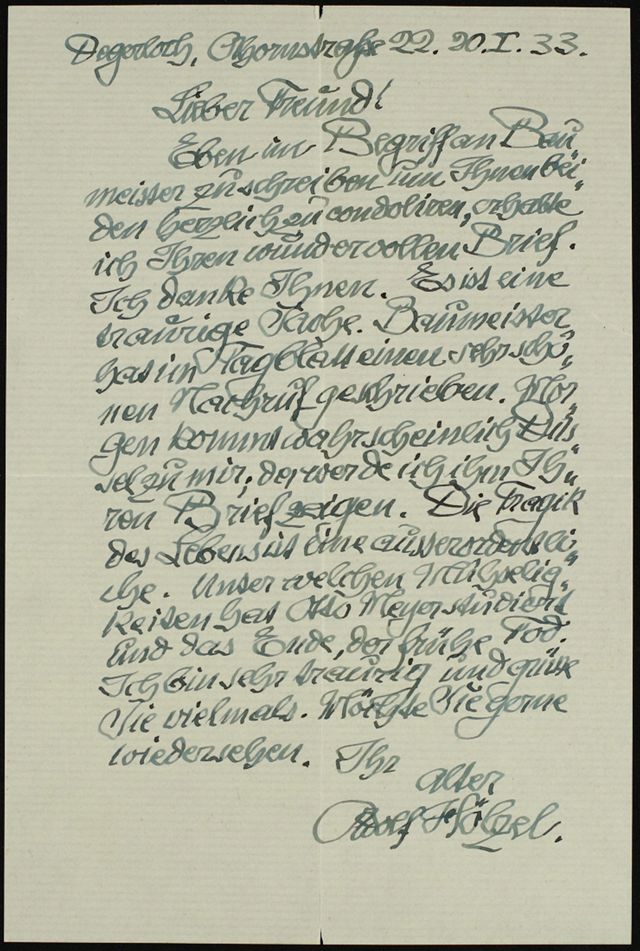 Degerloch, Ahornstraße 22. 20.I.33.
Lieber Freund!
Eben im Begriff an Bau„
meister zu schreiben um Ihnen bei„
den herzlich zu condoliren, erhalte
ich Ihren wundervollen Brief.
Ich danke Ihnen. Es ist eine
traurige Sache. Baumeister
hat im Tagblatt einen sehr schö„
nen Nachruf geschrieben. Mor„
gen kommt wahrscheinlich
zu mir, da werde ich ihm Ih„
ren Brief zeigen. Die Tragik
des Lebens ist eine ausserordentli„
che. Unter welchen Mühselig„
keiten hat Otto Meyer studiert
und das Ende, der frühe Tod.
Ich bin sehr traurig und grüsse
Sie vielmals. Möchte Sie gerne
wiedersehen. Ihr
alter
Adolf Hölzel.